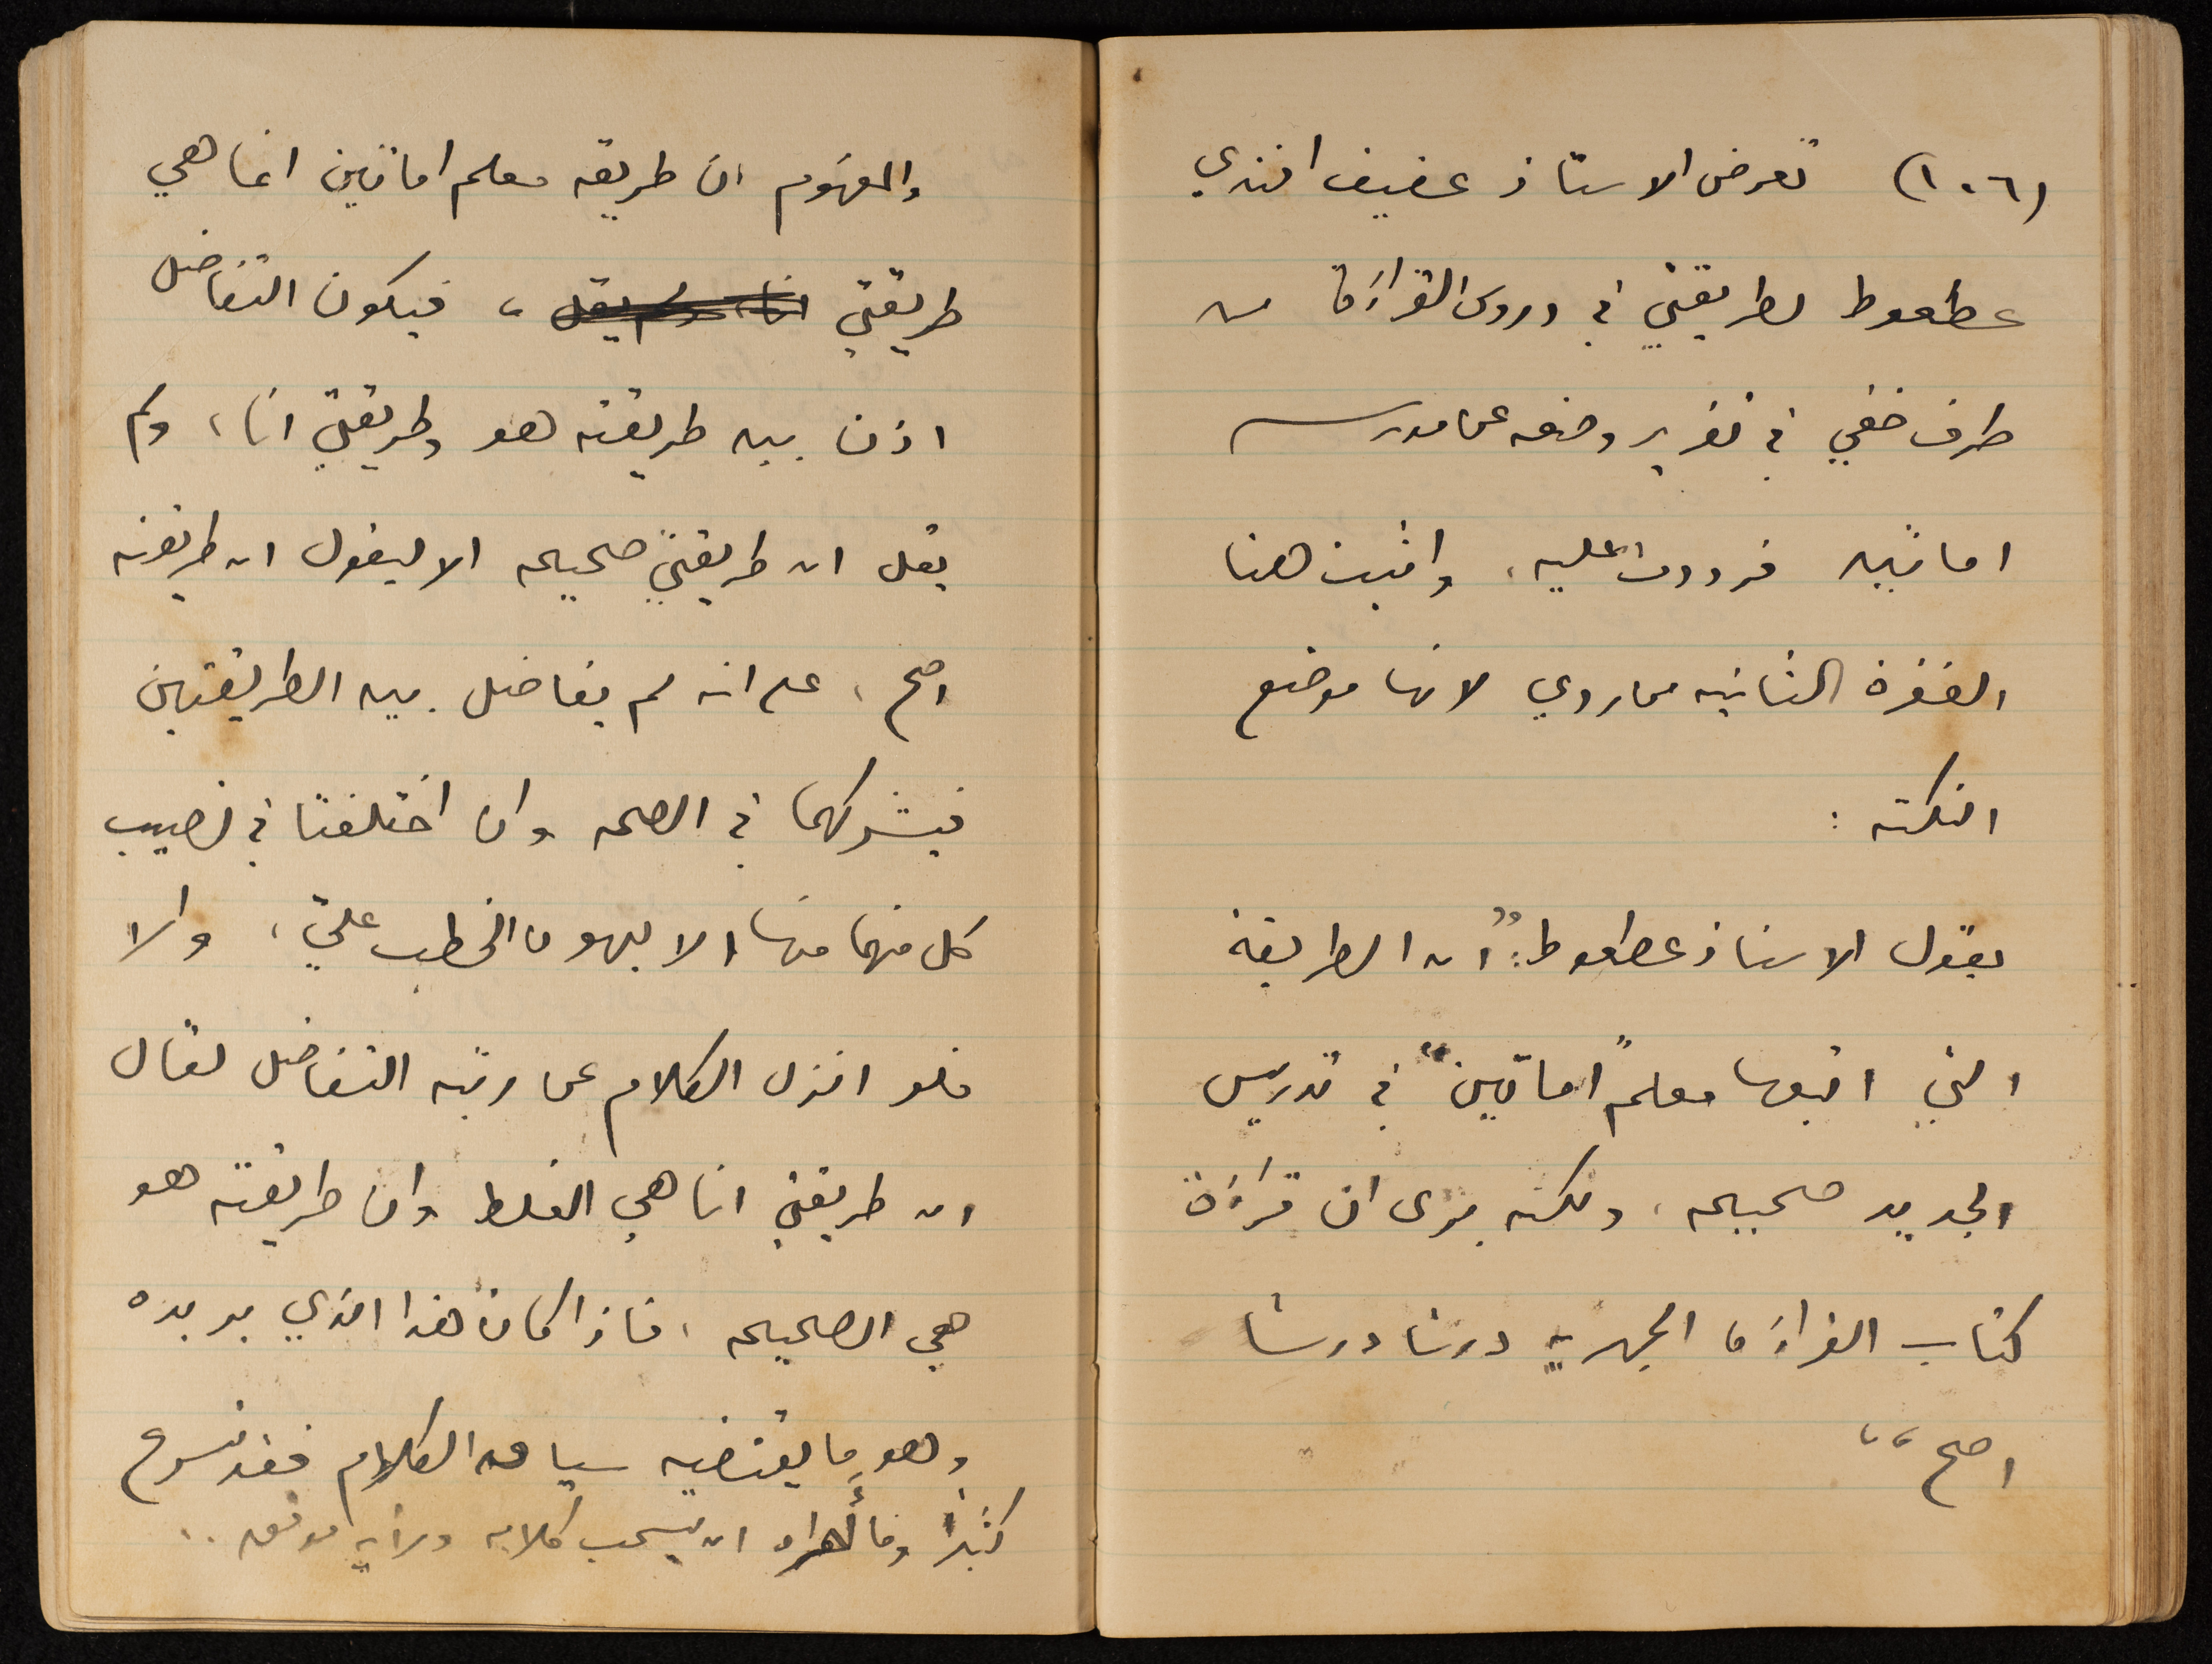 (١٠٦) تعرض الاستاذ عفيف افندي
عطعوط لطريقتي في دروس القراءة من
طرف خفي في تقرير وضعه عن مدرسه
اماتين فرددت عليه، واثبت هنا
الفقرة الثانيه من ردي لانها موضع
النكته :
يقول الاستاذ عطعوط: "ان الطريقة
التي اتبعها معلم "اماتين" في تدريس
الجديد صحيحه، ولكنه يرى ان قراءة
كتاب القراءة الجهريه درسًا درسًا
اصح"
والمفهوم ان طريقه معلم اماتين انما هي
طريقتي انا، ولم يقل ، فيكون التفاضل
اذن بين طريقته هو وطريقتي انا، ولم
يقل ان طريقتي صحيحه الا ليقول ان طريقته
اصح، على انه لم يفاضل بين الطريقتين
فيشركهما في الصحه وان اختلفتا في نصيب
كل منهما منها الا ليهون الخطب عليّ، والا
فلو انزل الكلام عن رتبه التفاضل لقال
ان طريقتي انا هي الغلط وان طريقته هو
هي الصحيحه، فاذا كان هذا الذي يريده
وهو ما يقتضيه سياق الكلام فقد تسرع
كثيرًا وما أراه ان يسحب كلامه ورأيه موفق..